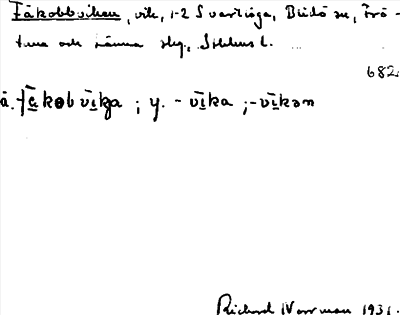 Jäkobbviken, vik, 1-2 Svartlöga, Blidö sn, Frö-
tuna och Länna skg, Sthlms l.
682.
ä. jäkobvika ; y. -vika ; -vikən
Richard Norrman 1931.